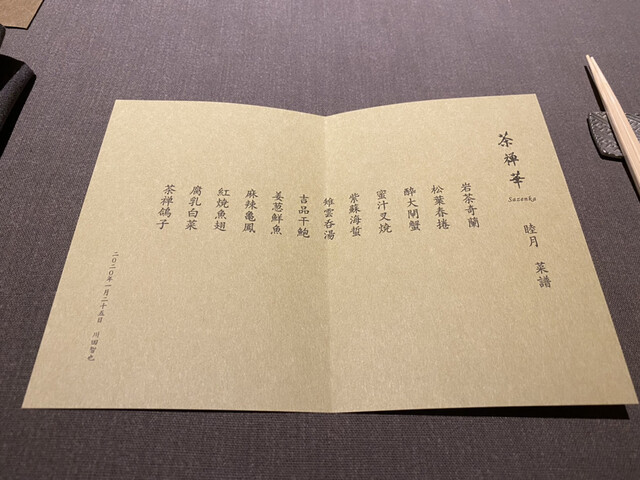 茶禅華
Sazenka
睦月 菜譜
岩茶奇蘭
松葉春捲
酔大閘蟹
蜜汁叉焼
紫蘇海蜇
雉雲呑湯
吉品干鮑
姜葱鮮魚
麻辣亀鳳
紅焼魚翅
腐乳白菜
茶禅鴿子
二〇二〇年一月二十五日 川田智也